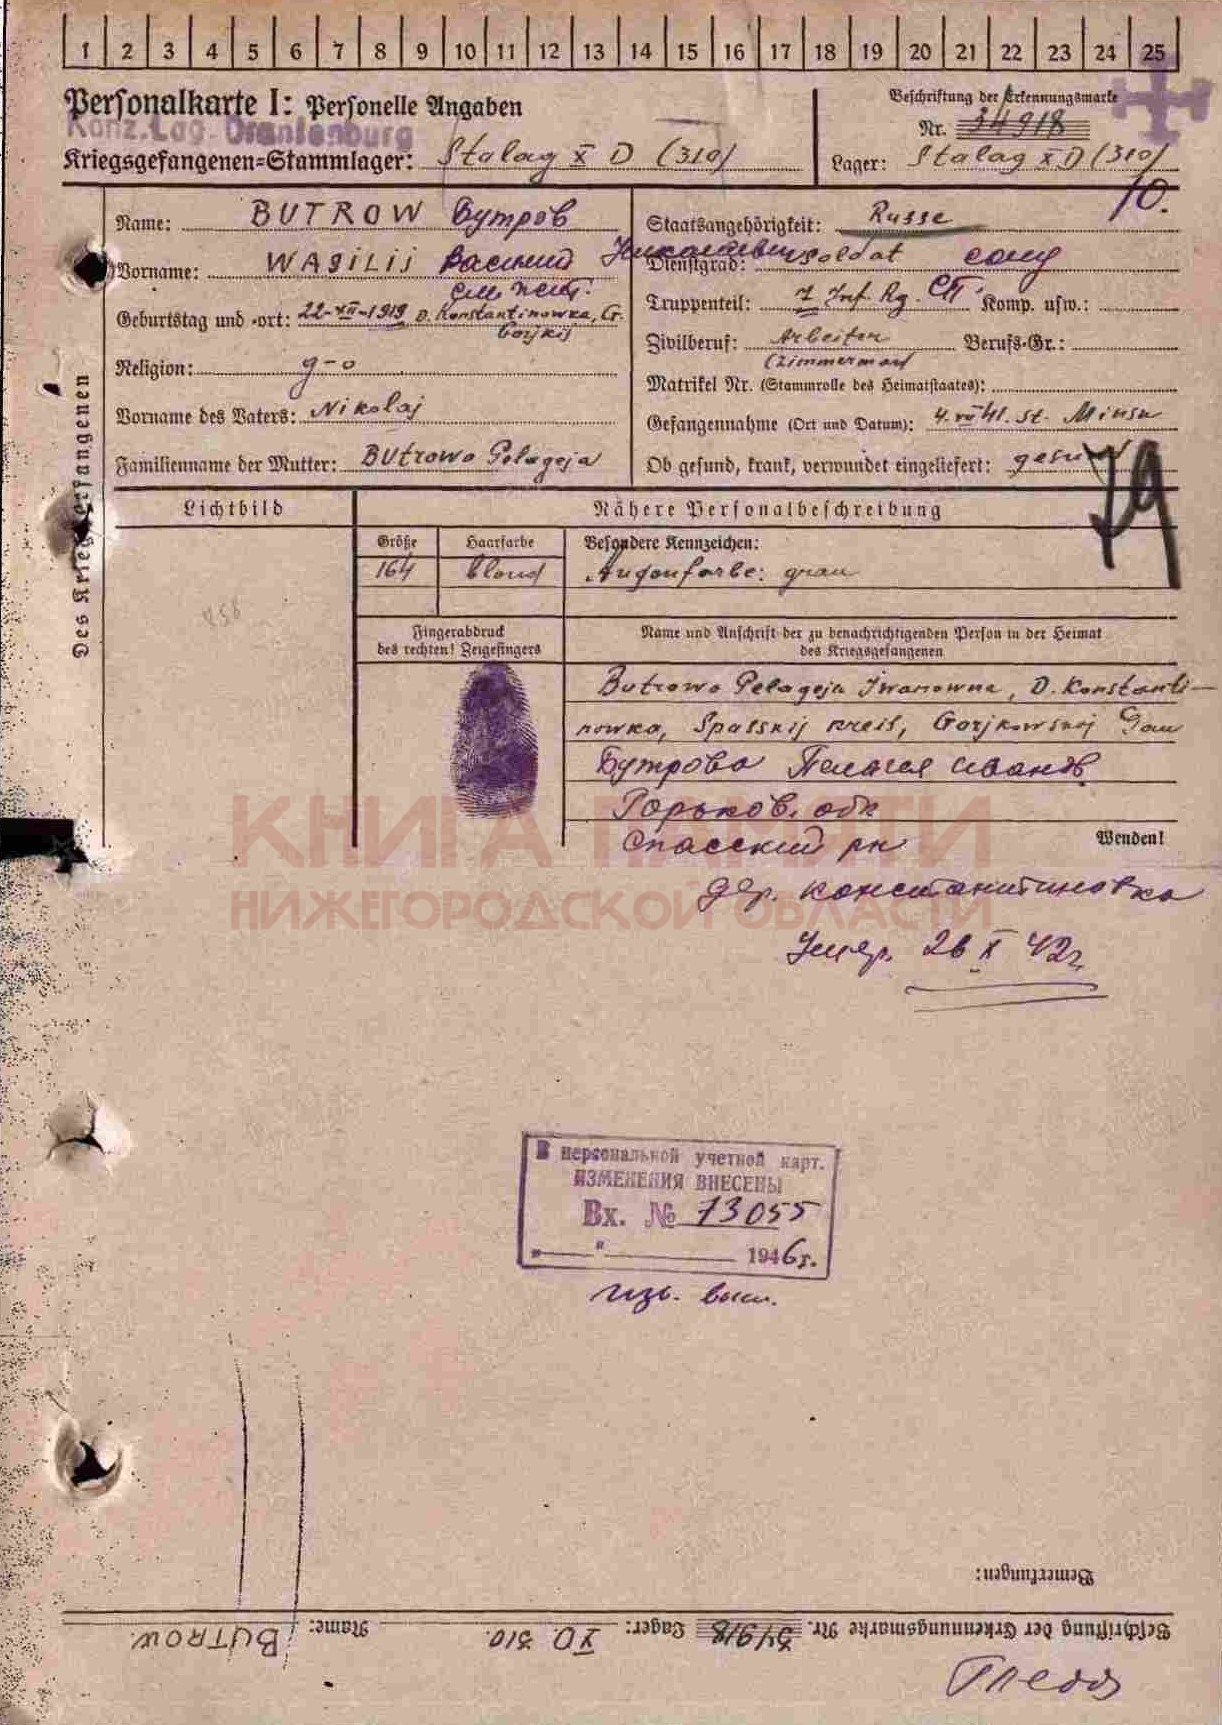 1 2 3 4 5 6 7 8 9 10 11 12 13 14 15 16 17 18 19 20 21 22 23 24 25
Personalkarte I: Personelle Angaben
Konz.Lag. Oranienburg
Kriegsgefangenen-Stammlager: Stalag X D (310)
Beschriftung der Erkennungsmarke
Nr. 34918
Lager: Stalag X D (310)
10.
Des Kriegsgefangenen
Name: BUTROW Бутров
Vorname: WASILIJ Василий Николаевич
Geburtstag und -ort: 22-XII-1919 D. Konstantinowka, G.
Gorjkij
Religion: g-o
Vorname des Vaters: Nikolaj
Familienname der Mutter: Butrowo Pelageja
Staatsangehörigkeit: Russe
Dienstgrad: Soldat солд
Truppenteil: 7 Inf. Rg. СП. Komp. usw.:
Zivilberuf: Arbeiter Berufs-Gr.:
(Zimmerman)
Matrikel Nr. (Stammrolle des Heimatstaates):
Gefangennahme (Ort und Datum): 4. VII 41. St. Minsk
Ob gesund, krank, verwundet eingeliefert: gesund
Lichtbild
Nähere Personalbeschreibung
Größe Haarfarbe Besondere Kennzeichen:
164 blond Augenfarbe: grau
Fingerabdruck
des rechten! Zeigefingers
Name und Anschrift der zu benachrichtigenden Person in der Heimat
des Kriegsgefangenen
Butrowo Pelageja Iwanowna, D. Konstanti-
nowka, Spasskij Kreis, Gorjkowskoj Gau
Бутрова Пелагея Иванов
Горьков. обл
Спасский рн
дер. Константиновка
Wenden!
КНИГА ПАМЯТИ
НИЖЕГОРОДСКОЙ ОБЛАСТИ
Умер. 26 X 42г
В персональной учетной карт.
ИЗМЕНЕНИЯ ВНЕСЕНЫ
Вх. № 73055
" " 1946г.
Bemerkungen:
Beschriftung der Erkennungsmarke Nr. 34918 Lager: XD 310. Name: BUTROW.